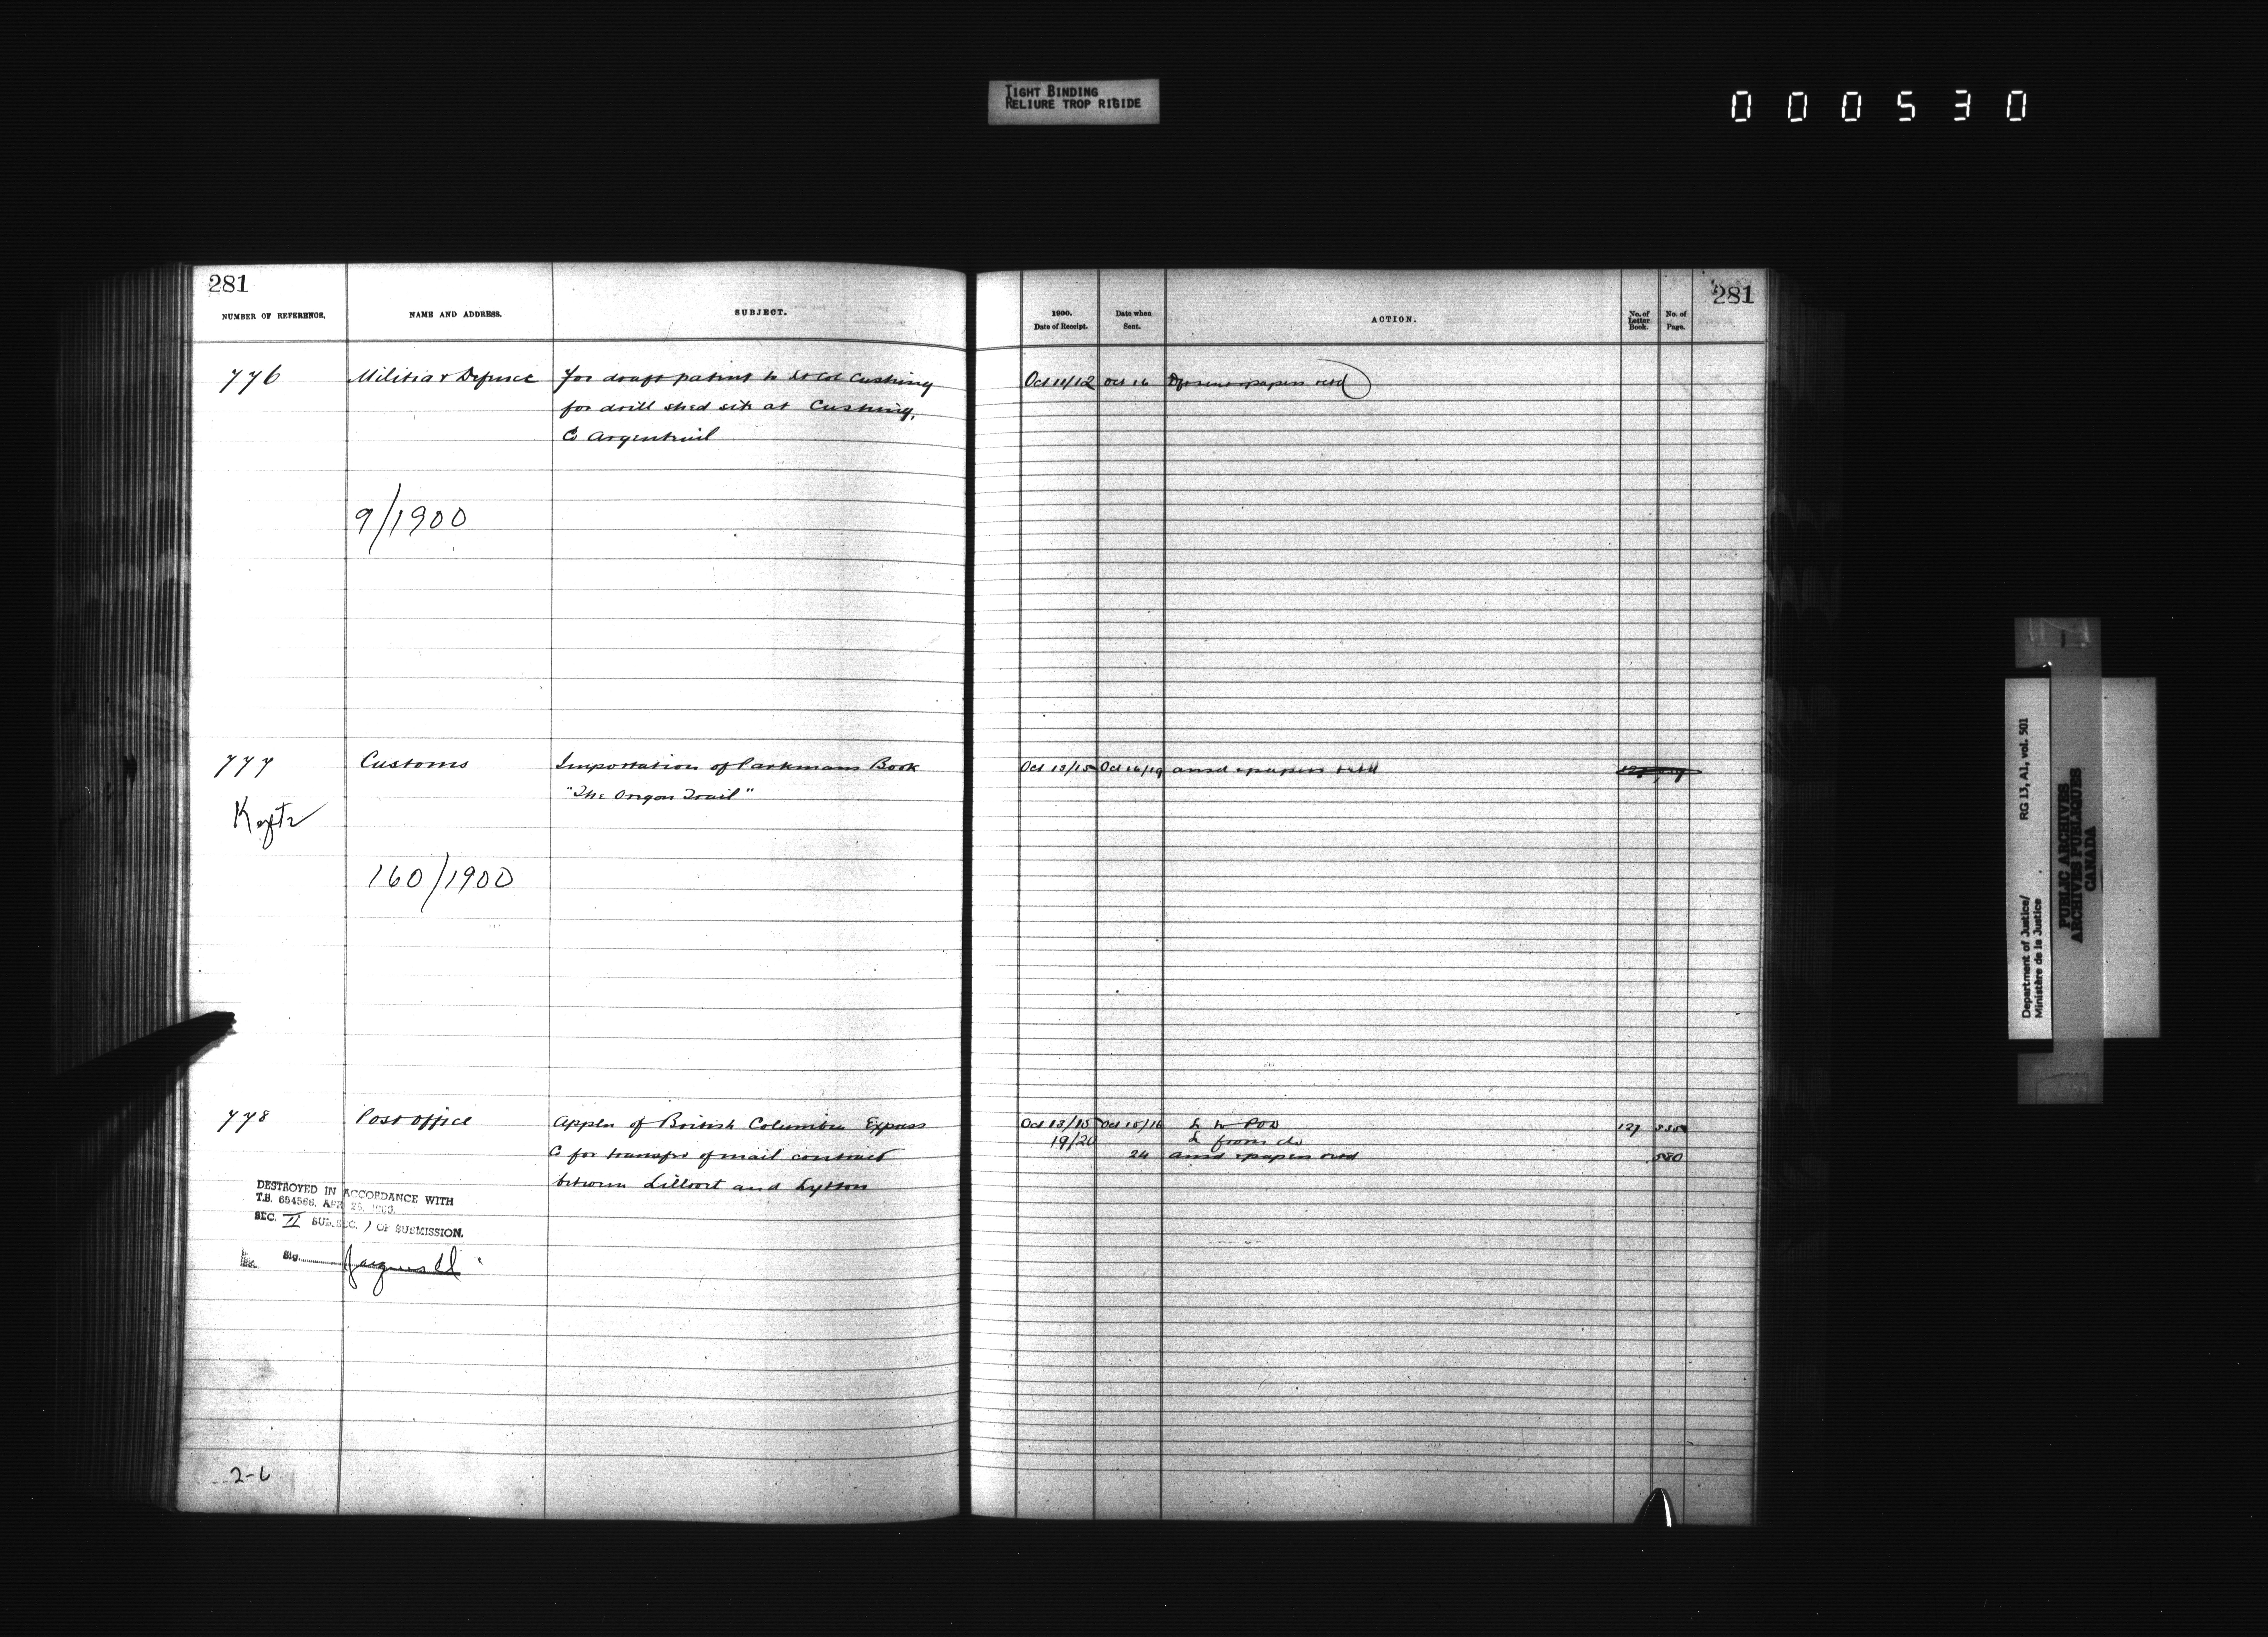 TIGHT BINDING
RELIURE TROP RIGIDE
000530
281
281
NUMBER OF REFERENCE.
NAME AND ADDRESS.
SUBJECT.
1900.
Date of Receipt.
Date when
Sent.
ACTION.
No. of
Letter
Book.
No. of
Page.
776 Militia & Defence For draft patent to Lt Col Cushing Oct 11/12 Oct 16 Dft sent & papers retd
for drill shed site at Cushing,
Co Argenteuil
9/1900
777 Customs Importation of Parkmans Book Oct 13/15 Oct 16/19 ansd & papers retd
"The Oregon Trail"
Kept
160/1900
778 Post Office Appln of British Columbia Express Oct 13/15 Oct 15/16 L to POD 127
19/20 L from do
Co for transfer of mail contract 24 ansd & papers retd 580
between Lillooet and Lytton
DESTROYED IN ACCORDANCE WITH
T.B. 654566, APR 25,
SEC. II SUB. SEC. ) OF SUBMISSION.
Sig.
2-6
Department of Justice/ RG 13, A1, vol. 501
Ministère de la Justice
PUBLIC ARCHIVES
ARCHIVES PUBLIQUES
CANADA